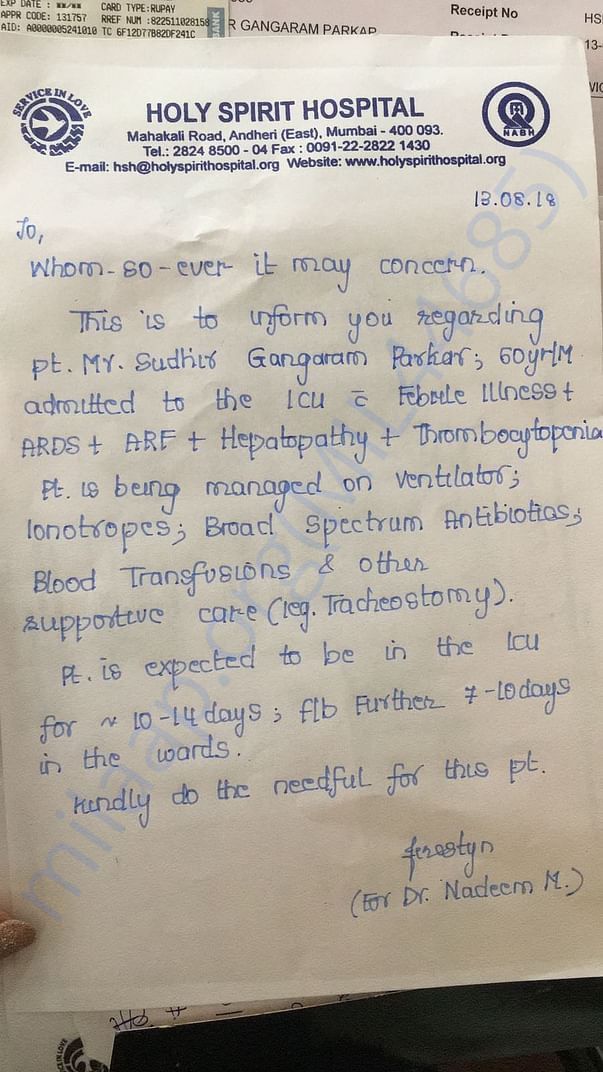 EXP DATE : **/** CARD TYPE:RUPAY
APPR CODE: 131757 RREF NUM :822511028158
AID: A0000005241010 TC 6F12D77B82DF241C
BANK
R GANGARAM PARKAR
Receipt No
HS
13-
SERVICE IN LOVE
HOLY SPIRIT HOSPITAL
NABH
Mahakali Road, Andheri (East), Mumbai - 400 093.
Tel.: 2824 8500 - 04 Fax : 0091-22-2822 1430
E-mail: hsh@holyspirithospital.org Website: www.holyspirithospital.org
13.08.18
To,
Whom-so-ever it may concern.
This is to inform you regarding
pt. Mr. Sudhir Gangaram Parkar; 60yr/M
admitted to the ICU c̄ Febrile Illness +
ARDS + ARF + Hepatopathy + Thrombocytopenia
Pt. is being managed on ventilator;
Ionotropes; Broad Spectrum Antibiotics;
Blood Transfusions & other
supportive care (ieg. Tracheostomy).
Pt. is expected to be in the ICU
for ~ 10-14 days ; f/b Further 7-10 days
in the wards.
Kindly do the needful for this pt.
(For Dr. Nadeem M.)
milaap.org(MIL44685)